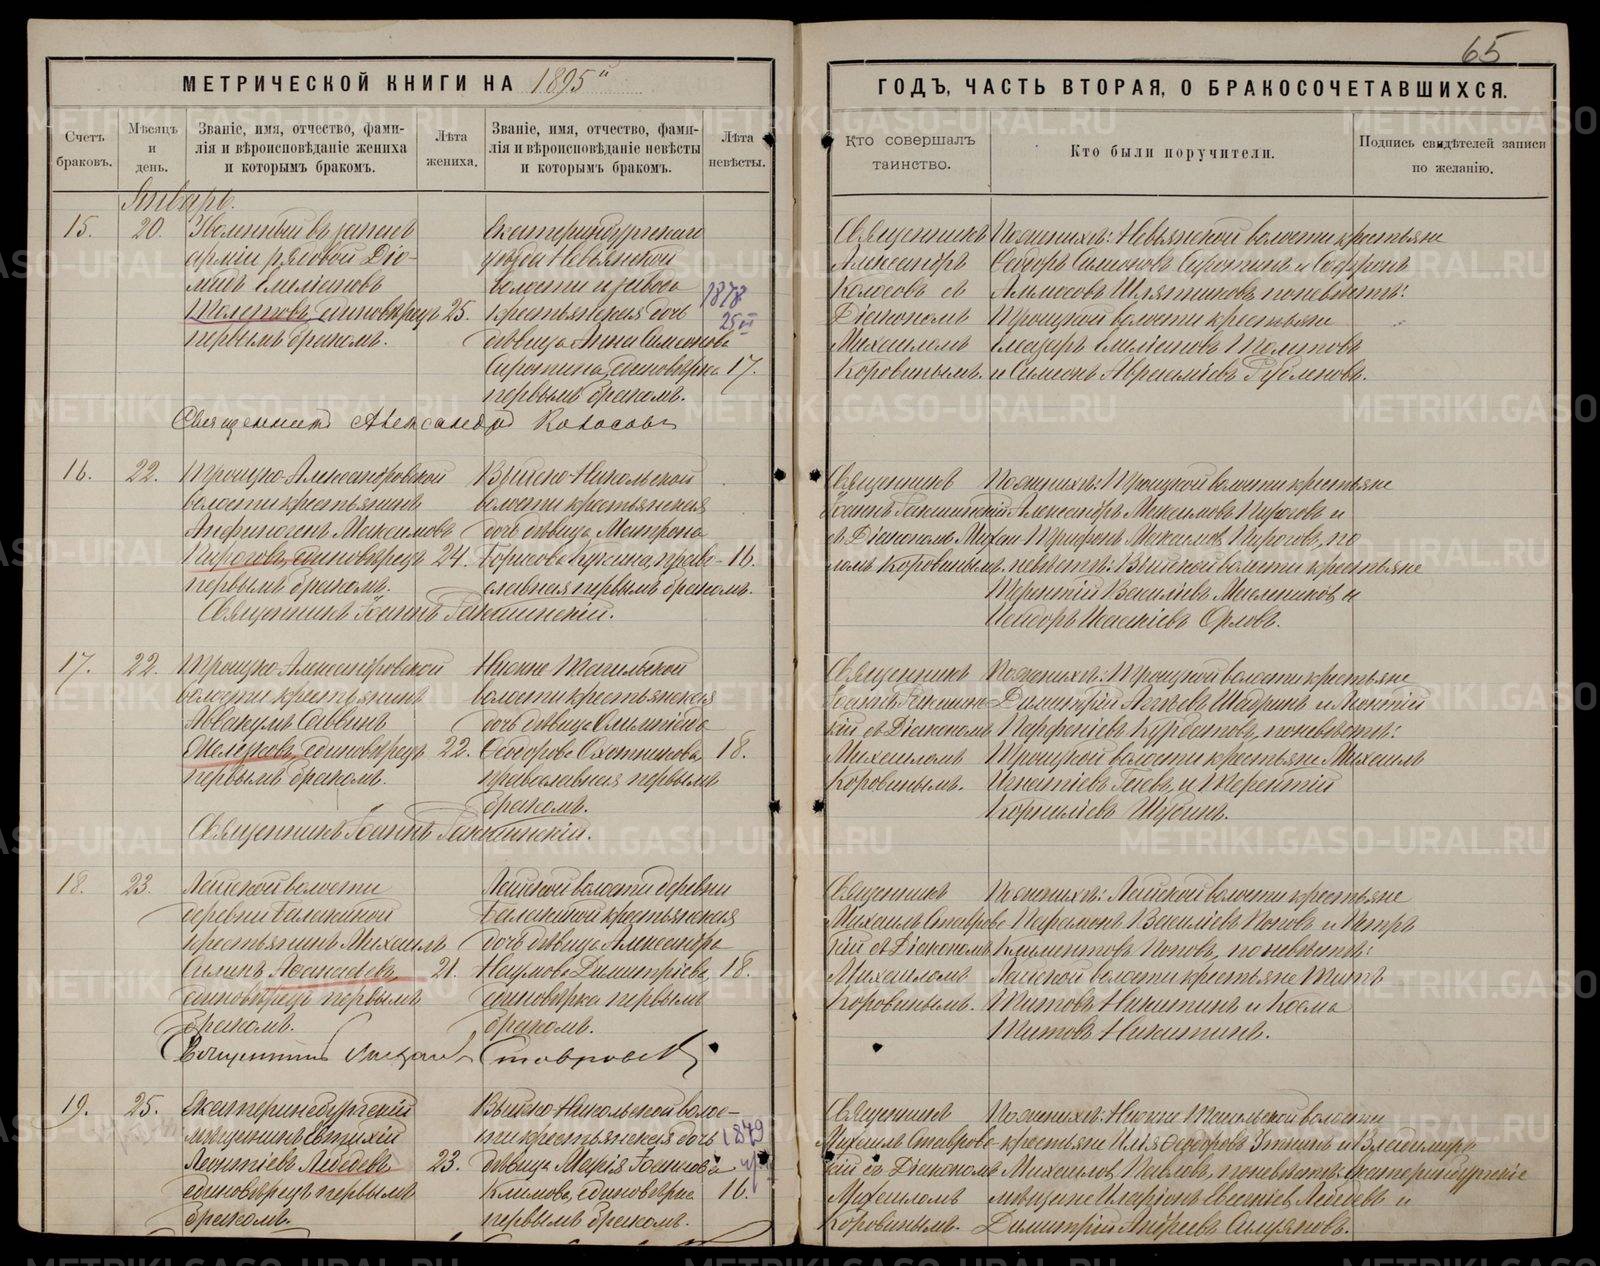 65
МЕТРИЧЕСКОЙ КНИГИ НА 1895й
ГОДЪ, ЧАСТЬ ВТОРАЯ, О БРАКОСОЧЕТАВШИХСЯ.
Счетъ браковъ.
Мѣсяцъ и день.
Званіе, имя, отчество, фами-
лія и вѣроисповѣданіе жениха
и которымъ бракомъ.
Лѣта жениха.
Званіе, имя, отчество, фами-
лія и вѣроисповѣданіе невѣсты
и которымъ бракомъ.
Лѣта невѣсты.
Кто совершалъ
таинство.
Кто были поручители.
Подпись свидѣтелей записи
по желанію.
Январь.
15.
20.
Уволенный въ запасъ
арміи рядовой Діо-
мидъ Емеліановъ
единовѣрецъ 25.
первымъ бракомъ.
Екатеринбургскаго
уѣзда Невьянской
волости и завода
крестьянская дочь
дѣвица Анна Симонова
Сиротина, единовѣрка 17.
первымъ бракомъ.
1878
25
Священникъ
Александръ
Колосовъ съ
Діакономъ
Михаиломъ
Коровинымъ.
По женихѣ: Невьянской волости крестьяне
Ѳедоръ Симоновъ Сиротинъ и Софронъ
по невѣстѣ:
Троицкой волости крестьяне
Емеліановъ
и Симонъ Авраміевъ
Священникъ Александръ Колосовъ
16.
22.
Троицко-Александровской
волости крестьянинъ
Анфиногенъ Максимовъ
Пироговъ, единовѣрецъ 24.
первымъ бракомъ.
Выйско-Никольской
волости крестьянская
дочь дѣвица Матрона
Борисова правос- 16.
лавная первымъ бракомъ.
Священникъ
Іоаннъ
съ Діакономъ Миха-
ломъ Коровинымъ.
По женихѣ: Троицкой волости крестьяне
Александръ Максимовъ Пироговъ и
Трифонъ Максимовъ Пироговъ, по
невѣстѣ: Выйской волости крестьяне
Терентій Васильевъ Мельниковъ и
Исидоръ Орловъ.
Священникъ Іоаннъ
17.
22.
Троицко-Александровской
волости крестьянинъ
Аввакумъ Саввинъ
единовѣрецъ 22.
первымъ бракомъ.
Нижне Тагильской
волости крестьянская
дочь дѣвица
Ѳедорова Охотникова, 18.
православная первымъ
бракомъ.
Священникъ
Іоаннъ
кій съ Діакономъ
Михаиломъ
Коровинымъ.
По женихѣ: Троицкой волости крестьяне
Димитрій
Парѳеніевъ Курбатовъ, по невѣстѣ:
Троицкой волости крестьяне Михаилъ
Игнатіевъ и Терентій
Корниліевъ
Священникъ Іоаннъ
18.
23.
Лайской волости
деревни Балакиной
крестьянинъ Михаилъ
Силинъ Аѳанасьевъ, 21.
единовѣрецъ первымъ
бракомъ.
Лайской волости деревни
Балакиной крестьянская
дочь дѣвица Александра
Наумова Димитріева, 18.
единовѣрка первымъ
бракомъ.
Священникъ
Михаилъ Ставровс-
кій съ Діакономъ
Михаиломъ
Коровинымъ.
По женихѣ: Лайской волости крестьяне
Парамонъ Васильевъ Поповъ и
Климентовъ Поповъ, по невѣстѣ:
Лайской волости крестьяне Титъ
Титовъ Никитинъ и Косма
Титовъ Никитинъ.
Священникъ Михаилъ Ставровскій
19.
25.
Екатеринбургскій
мѣщанинъ Евтихій
Леонтіевъ Лебедевъ 23.
единовѣрецъ первымъ
бракомъ.
Выйско-Никольской волос-
ти крестьянская дочь
дѣвица Марія Іоаннова
Климова, единовѣрка 16.
первымъ бракомъ.
1879
Священникъ
Михаилъ Ставровс-
кій съ Діакономъ
Михаиломъ
Коровинымъ.
По женихѣ: Нижне Тагильской волости
крестьяне Илья Ѳедоровъ Уткинъ и Владиміръ
Михаиловъ Павловъ, по невѣстѣ: Екатеринбургскіе
мѣщане Иларіонъ Лебедевъ и
Димитрій Андреевъ
METRIKI.GASO-URAL.RU